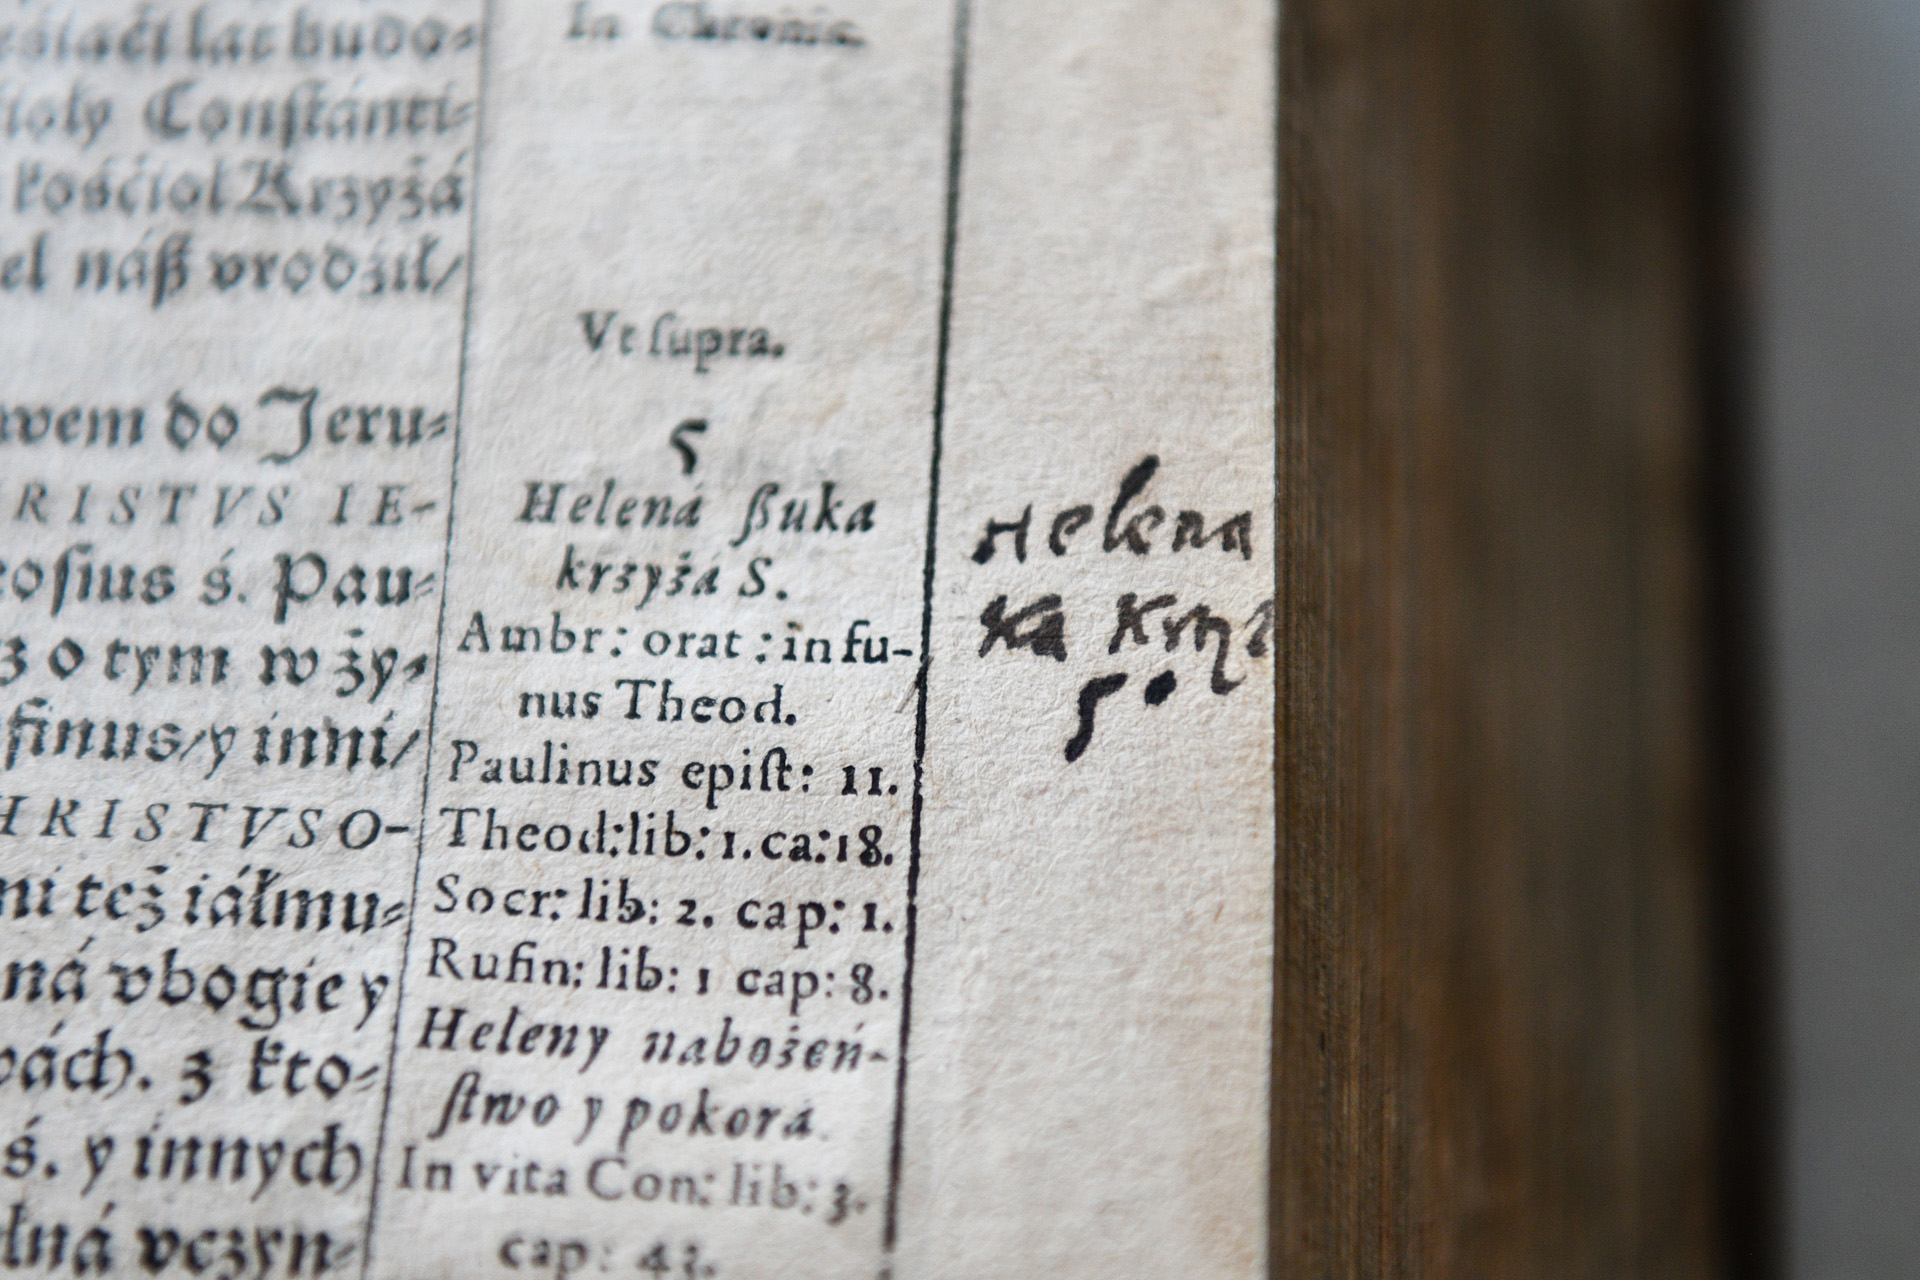 budo⸗
ioły Constánti⸗
kośćioł Krzyżá
el náß vrodźił/
wem do Jeru⸗
RISTVS IE-
eosius ś. Pau⸗
z o tym w ży⸗
finus/y inni/
HRISTVS O-
ni też iáłmu⸗
ná vbogie y
pách. z kto⸗
ś. y innych
łná vczyn⸗
In Chronic.
Vt ſupra.
5
Helená ßuka
krzyżá S.
Ambr: orat: in fu-
nus Theod.
Paulinus epiſt: 11.
Theod: lib: 1. ca: 18.
Socr: lib: 2. cap: 1.
Rufin: lib: 1 cap: 8.
Heleny nabożeń-
ſtwo y pokora.
In vita Con: lib: 3.
cap: 43.
Helena